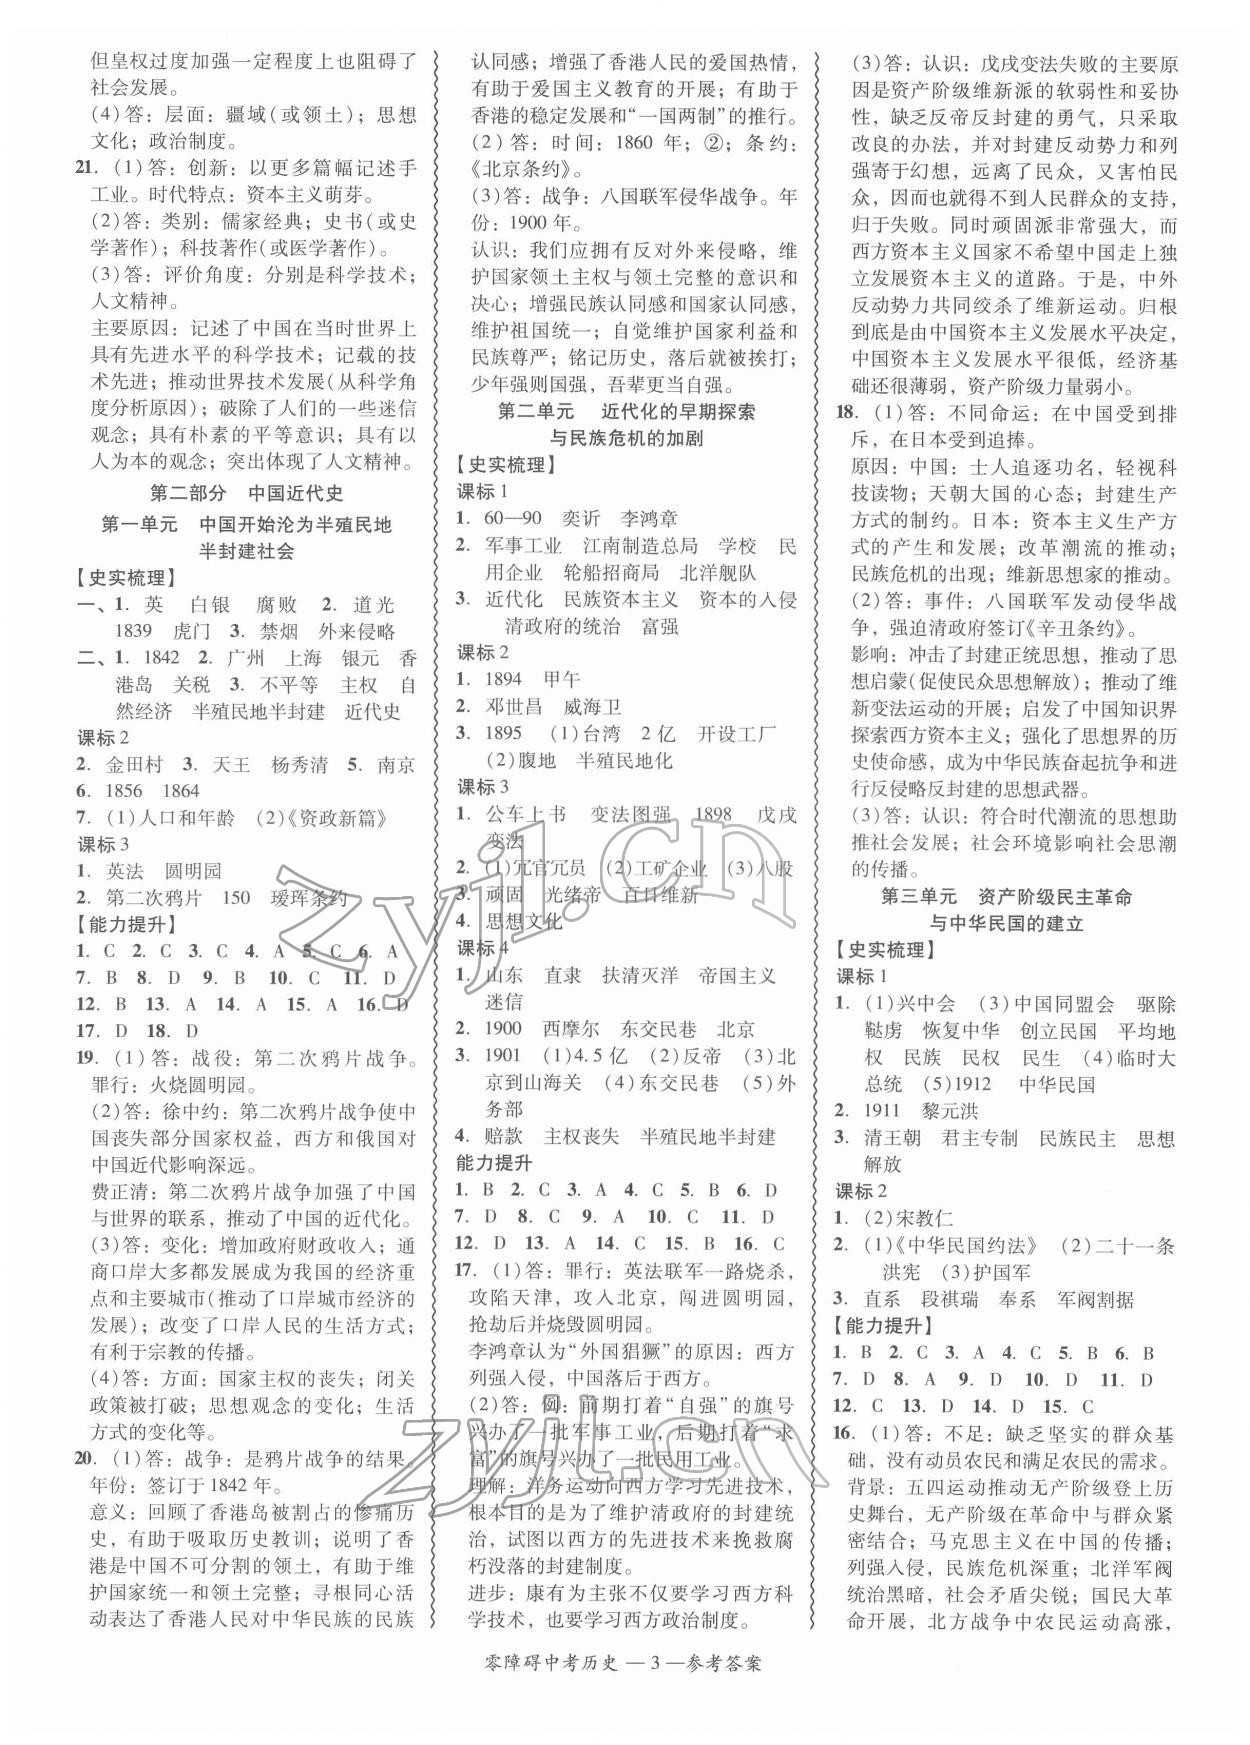 但皇权过度加强一定程度上也阻碍了
社会发展。
(4)答：层面：疆域(或领土)；思想
文化；政治制度。
21. (1)答：创新：以更多篇幅记述手
工业。时代特点：资本主义萌芽。
(2)答：类别：儒家经典；史书(或史
学著作)；科技著作(或医学著作)。
(3)答：评价角度：分别是科学技术；
人文精神。
主要原因：记述了中国在当时世界上
具有先进水平的科学技术；记载的技
术先进；推动世界技术发展(从科学角
度分析原因)；破除了人们的一些迷信
观念；具有朴素的平等意识；具有以
人为本的观念；突出体现了人文精神。
第二部分 中国近代史
第一单元 中国开始沦为半殖民地
半封建社会
【史实梳理】
一、1. 英 白银 腐败 2. 道光
1839 虎门 3. 禁烟 外来侵略
二、1. 1842 2. 广州 上海 银元 香
港岛 关税 3. 不平等 主权 自
然经济 半殖民地半封建 近代史
课标 2
2. 金田村 3. 天王 杨秀清 5. 南京
6. 1856 1864
7. (1)人口和年龄 (2)《资政新篇》
课标 3
1. 英法 圆明园
2. 第二次鸦片 150 瑷珲条约
【能力提升】
1. C 2. C 3. C 4. A 5. C 6. A
7. B 8. D 9. B 10. C 11. D
12. B 13. A 14. A 15. A 16. D
17. D 18. D
19. (1)答：战役：第二次鸦片战争。
罪行：火烧圆明园。
(2)答：徐中约：第二次鸦片战争使中
国丧失部分国家权益，西方和俄国对
中国近代影响深远。
费正清：第二次鸦片战争加强了中国
与世界的联系，推动了中国的近代化。
(3)答：变化：增加政府财政收入；通
商口岸大多都发展成为我国的经济重
点和主要城市(推动了口岸城市经济的
发展)；改变了口岸人民的生活方式；
有利于宗教的传播。
(4)答：方面：国家主权的丧失；闭关
政策被打破；思想观念的变化；生活
方式的变化等。
20. (1)答：战争：是鸦片战争的结果。
年份：签订于 1842 年。
意义：回顾了香港岛被割占的惨痛历
史，有助于吸取历史教训；说明了香
港是中国不可分割的领土，有助于维
护国家统一和领土完整；寻根同心活
动表达了香港人民对中华民族的民族
认同感；增强了香港人民的爱国热情，
有助于爱国主义教育的开展；有助于
香港的稳定发展和“一国两制”的推行。
(2)答：时间：1860 年；②；条约：
《北京条约》。
(3)答：战争：八国联军侵华战争。年
份：1900 年。
认识：我们应拥有反对外来侵略，维
护国家领土主权与领土完整的意识和
决心；增强民族认同感和国家认同感，
维护祖国统一；自觉维护国家利益和
民族尊严；铭记历史，落后就被挨打；
少年强则国强，吾辈更当自强。
第二单元 近代化的早期探索
与民族危机的加剧
【史实梳理】
课标 1
1. 60—90 奕䜣 李鸿章
2. 军事工业 江南制造总局 学校 民
用企业 轮船招商局 北洋舰队
3. 近代化 民族资本主义 资本的入侵
清政府的统治 富强
课标 2
1. 1894 甲午
2. 邓世昌 威海卫
3. 1895 (1)台湾 2 亿 开设工厂
(2)腹地 半殖民地化
课标 3
1. 公车上书 变法图强 1898 戊戌
变法
2. (1)冗官冗员 (2)工矿企业 (3)八股
3. 顽固 光绪帝 百日维新
4. 思想文化
课标 4
1. 山东 直隶 扶清灭洋 帝国主义
迷信
2. 1900 西摩尔 东交民巷 北京
3. 1901 (1)4.5 亿 (2)反帝 (3)北
京到山海关 (4)东交民巷 (5)外
务部
4. 赔款 主权丧失 半殖民地半封建
能力提升
1. B 2. C 3. A 4. C 5. B 6. D
7. D 8. C 9. A 10. C 11. D
12. D 13. A 14. C 15. B 16. C
17. (1)答：罪行：英法联军一路烧杀，
攻陷天津，攻入北京，闯进圆明园，
抢劫后并烧毁圆明园。
李鸿章认为“外国猖獗”的原因：西方
列强入侵，中国落后于西方。
(2)答：例：前期打着“自强”的旗号
兴办了一批军事工业，后期打着“求
富”的旗号兴办了一批民用工业。
理解：洋务运动向西方学习先进技术，
根本目的是为了维护清政府的封建统
治，试图以西方的先进技术来挽救腐
朽没落的封建制度。
进步：康有为主张不仅要学习西方科
学技术，也要学习西方政治制度。
(3)答：认识：戊戌变法失败的主要原
因是资产阶级维新派的软弱性和妥协
性，缺乏反帝反封建的勇气，只采取
改良的办法，并对封建反动势力和列
强寄于幻想，远离了民众，又害怕民
众，因而也就得不到人民群众的支持，
归于失败。同时顽固派非常强大，而
西方资本主义国家不希望中国走上独
立发展资本主义的道路。于是，中外
反动势力共同绞杀了维新运动。归根
到底是由中国资本主义发展水平决定，
中国资本主义发展水平很低，经济基
础还很薄弱，资产阶级力量弱小。
18. (1)答：不同命运：在中国受到排
斥，在日本受到追捧。
原因：中国：士人追逐功名，轻视科
技读物；天朝大国的心态；封建生产
方式的制约。日本：资本主义生产方
式的产生和发展；改革潮流的推动；
民族危机的出现；维新思想家的推动。
(2)答：事件：八国联军发动侵华战
争，强迫清政府签订《辛丑条约》。
影响：冲击了封建正统思想，推动了思
想启蒙(促使民众思想解放)；推动了维
新变法运动的开展；启发了中国知识界
探索西方资本主义；强化了思想界的历
史使命感，成为中华民族奋起抗争和进
行反侵略反封建的思想武器。
(3)答：认识：符合时代潮流的思想助
推社会发展；社会环境影响社会思潮
的传播。
第三单元 资产阶级民主革命
与中华民国的建立
【史实梳理】
课标 1
1. (1)兴中会 (3)中国同盟会 驱除
鞑虏 恢复中华 创立民国 平均地
权 民族 民权 民生 (4)临时大
总统 (5)1912 中华民国
2. 1911 黎元洪
3. 清王朝 君主专制 民族民主 思想
解放
课标 2
1. (2)宋教仁
2. (1)《中华民国约法》 (2)二十一条
洪宪 (3)护国军
3. 直系 段祺瑞 奉系 军阀割据
【能力提升】
1. B 2. C 3. A 4. C 5. B 6. B
7. D 8. A 9. D 10. D 11. D
12. C 13. D 14. D 15. C
16. (1)答：不足：缺乏坚实的群众基
础，没有动员农民和满足农民的需求。
背景：五四运动推动无产阶级登上历
史舞台，无产阶级在革命中与群众紧
密结合；马克思主义在中国的传播；
列强入侵，民族危机深重；北洋军阀
统治黑暗，社会矛盾尖锐；国民大革
命开展，北方战争中农民运动高涨，
零障碍中考历史 — 3 —参考答案
zyjl.cn
zyjl.cn